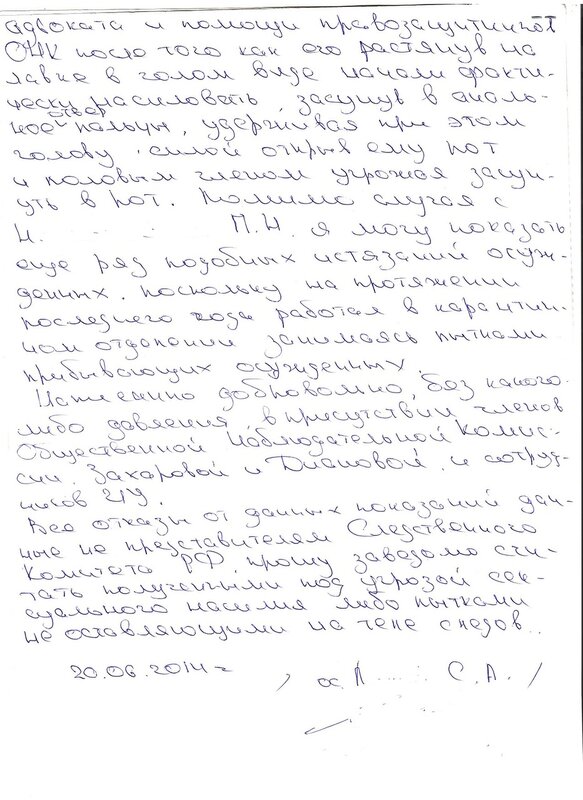 адвоката и помощи правозащитников от
ОНК после того как его растянув на
лавке в голом виде начали факти-
чески насиловать, засунув в аналь-
ное отвер пальцы, удерживая при этом
голову, силой открыв ему рот
и половым членом угрожая засун-
уть в рот. Помимо случая с
Н. П.Н. я могу показать
еще ряд подобных истязаний осуж-
денных, поскольку на протяжении
последнего года работал в карантин-
ном отделении занимаясь пытками
прибывающих осужденных.
Написанно добровольно, без какого-
либо давления, в присутствии членов
Общественной Наблюдательной Комис-
сии, Захаровой и Диановой, и сотруд-
ников УРУ.
Все отказы от данных показаний дан-
ные не представителем Следственного
Комитета РФ прошу заведомо счи-
тать полученными под угрозой сек-
суального насилия либо пытками
не оставляющими на теле следов.
20.06.2014 г / ос. Л С.А. /